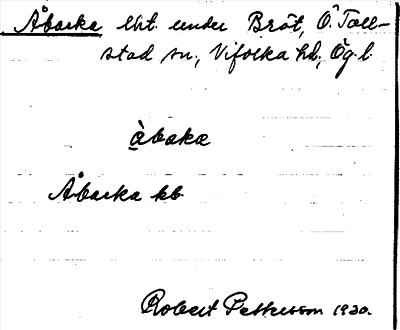 Åbacka lht. under Bröt, Ö. Toll-
stad sn., Vifolka hd., Ög. l.
àbaka
Åbacka kb
Robert Pettersson 1930.